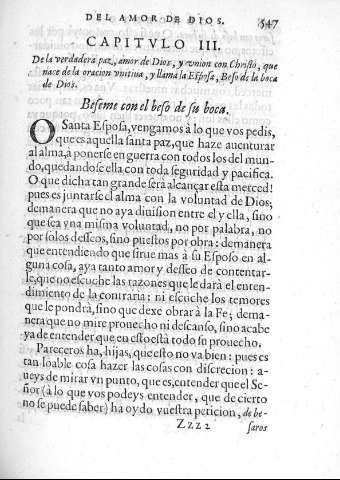 DEL AMOR DE DIOS. 547
CAPITVLO III.
De la verdadera paz, amor de Dios, y vnion con Christo, que
nace de la oracion vnitiua, y llama la Esposa, Beso de la boca
de Dios.
Beseme con el beso de su boca.
O Santa Esposa, vengamos à lo que vos pedis,
que es aquella santa paz, que haze auenturar
al alma, à ponerse en guerra con todos los del mun-
do, quedandose ella con toda seguridad y pacifica.
O que dicha tan grande será alcançar esta merced!
pues es juntarse el alma con la voluntad de Dios;
demanera que no aya diuision entre el y ella, sino
que sea vna misma voluntad, no por palabra, no
por solos desseos, sino puestos por obra: demanera
que entendiendo que sirue mas à su Esposo en al-
guna cosa, aya tanto amor y desseo de contentar-
le, que no escuche las razones que le dará el enten-
dimiento de la contraria; ni escuche los temores
que le pondrà, sino que dexe obrar à la Fe; dema-
nera que no mire prouecho ni descanso, sino acabe
ya de entender que en esto està todo su prouecho.
Pareceros ha, hijas, que esto no va bien: pues es
tan loable cosa hazer las cosas con discrecion: a-
ueys de mirar vn punto, que es, entender que el Se-
ñor (à lo que vos podeys entender, que de cierto
no se puede saber) ha oydo vuestra peticion, de be-
Zzz 2 saros